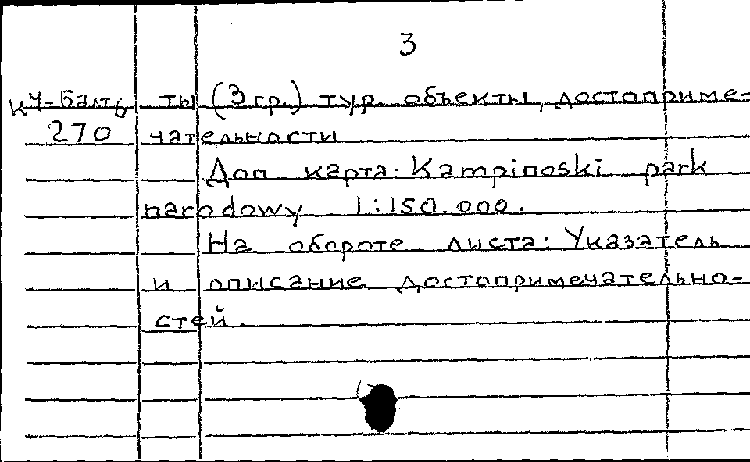 3
ты (3 гр.) тур. объекты, достоприме-
270 чательности
Доп. карта: Kampinoski park
narodowy 1:150.000.
На обороте листа: Указатель
и описание достопримечательно-
стей.